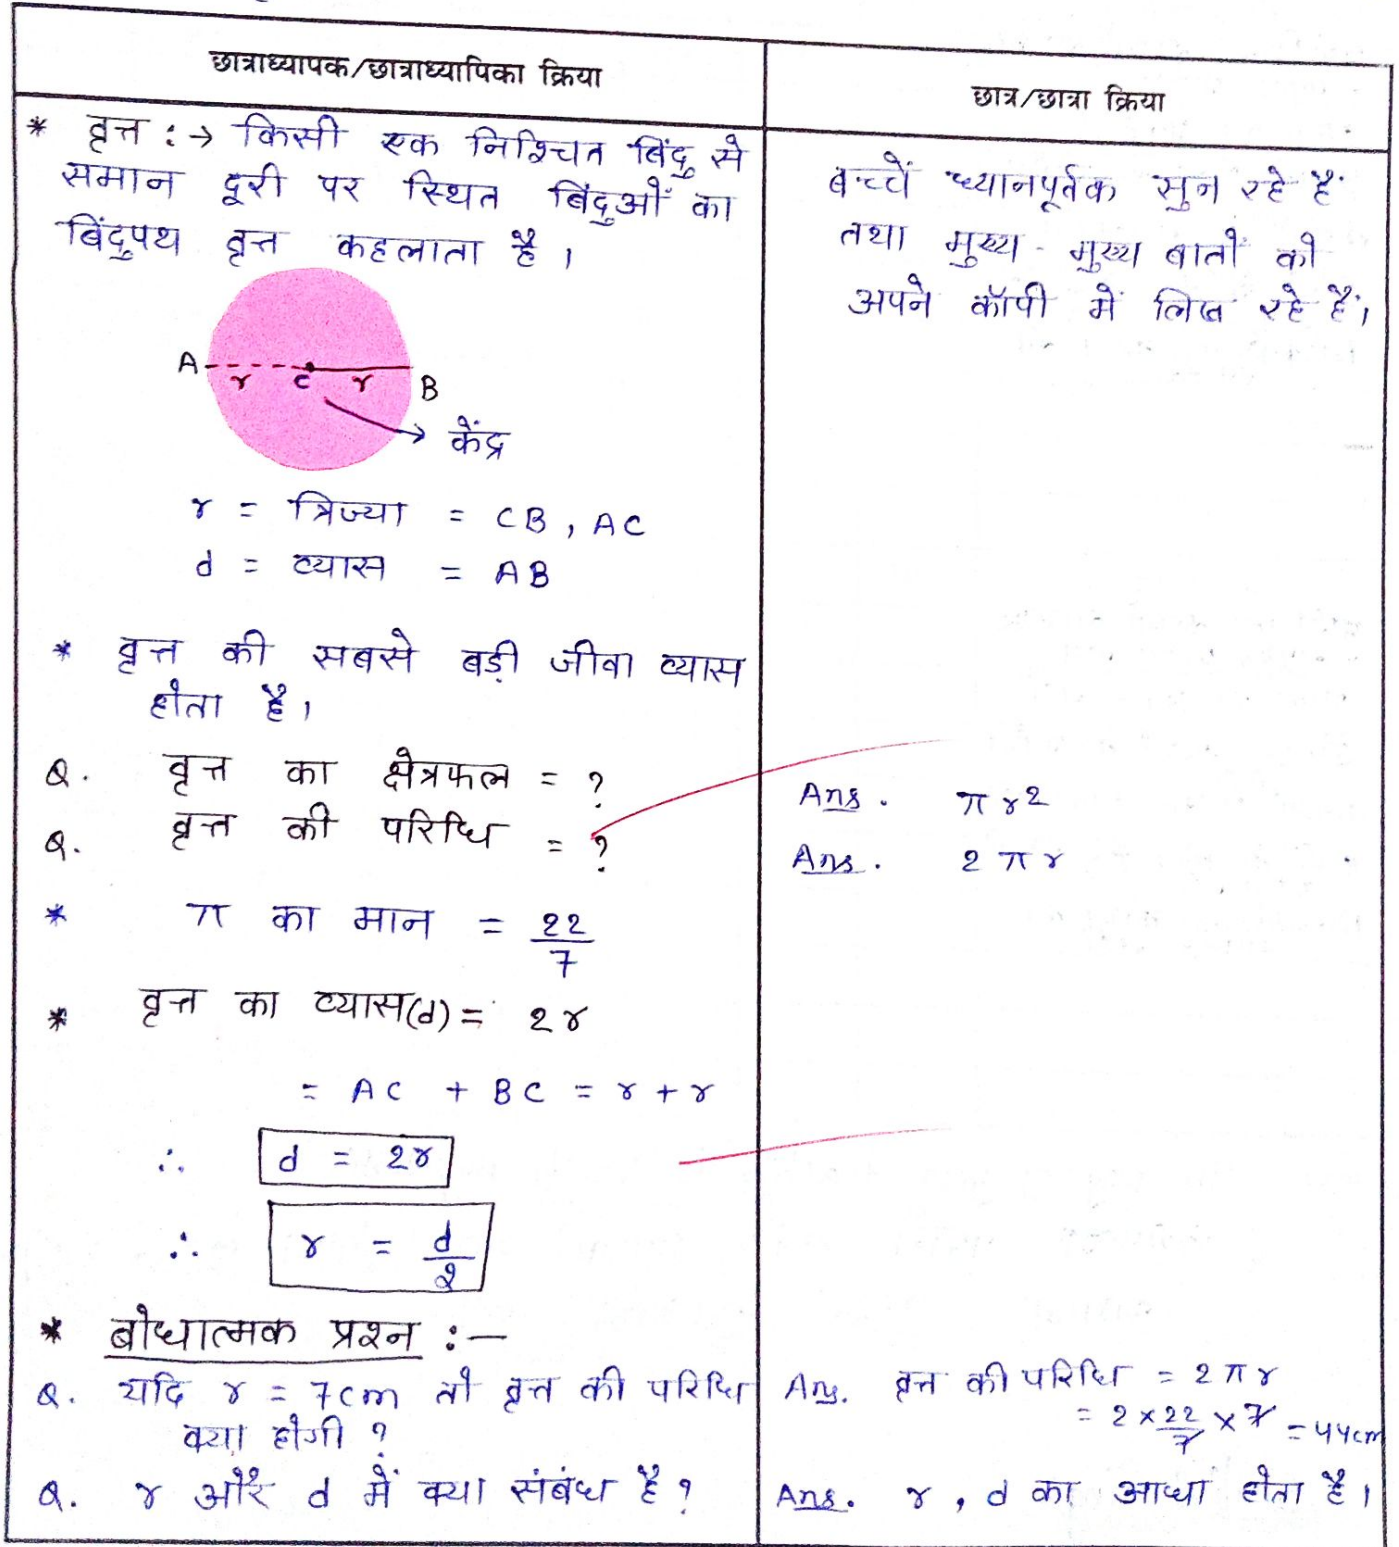 छात्राध्यापक/छात्राध्यापिका क्रिया
छात्र/छात्रा क्रिया
* वृत्त :→ किसी एक निश्चित बिंदु से
समान दूरी पर स्थित बिंदुओं का
बिंदुपथ वृत्त कहलाता है।
A r c r B
केंद्र
r = त्रिज्या = CB, AC
d = व्यास = AB
* वृत्त की सबसे बड़ी जीवा व्यास
होता है।
Q. वृत्त का क्षेत्रफल = ?
Q. वृत्त की परिधि = ?
* π का मान = 22/7
* वृत्त का व्यास(d) = 2r
= AC + BC = r + r
∴ d = 2r
∴ r = d/2
* बोधात्मक प्रश्न :—
Q. यदि r = 7cm तो वृत्त की परिधि
क्या होगी ?
Q. r और d में क्या संबंध है ?
बच्चें ध्यानपूर्वक सुन रहे हैं
तथा मुख्य - मुख्य बातों को
अपने कॉपी में लिख रहे हैं।
Ans. πr²
Ans. 2πr
Ans. वृत्त की परिधि = 2πr
= 2 × 22/7 × 7 = 44cm
Ans. r, d का आधा होता है।